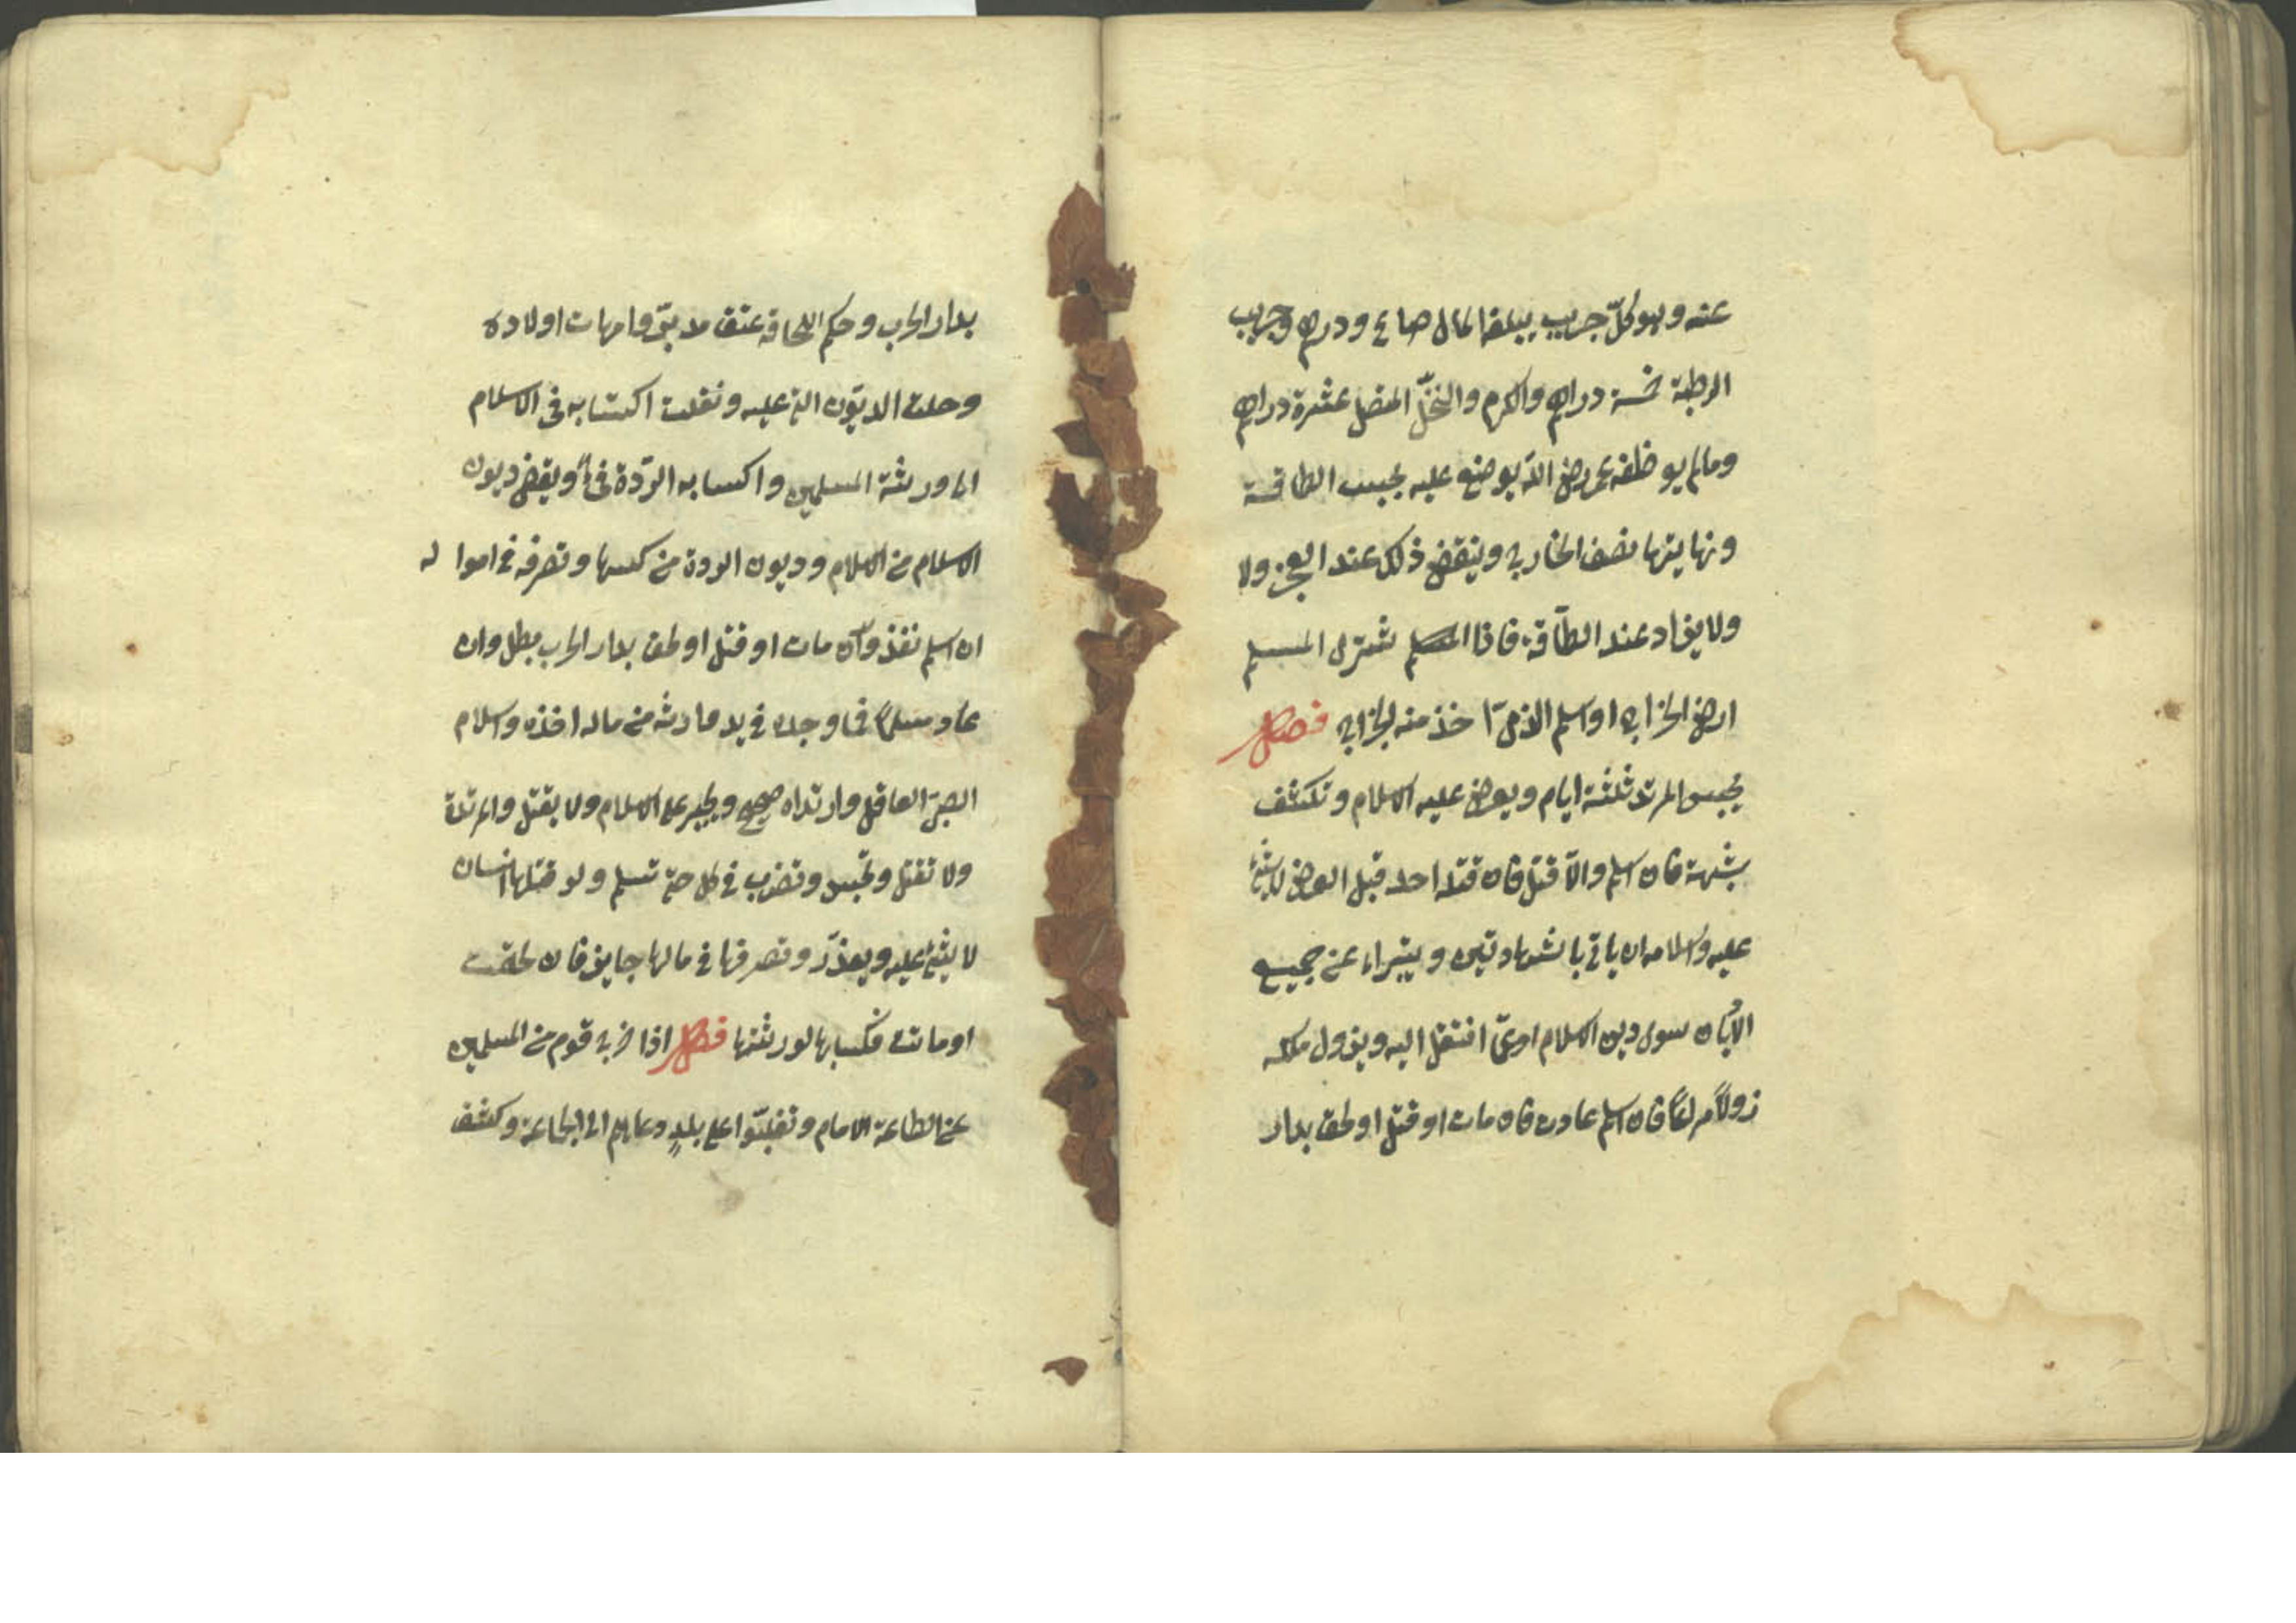 عنه وهو كلّ جريب يبلغه الماء صاع ودرهم وجريب
الرطبة خمسة دراهم والكرم والنخّل المتصل عشرة دراهم
ومالم يوظفه عمر رضي الله يوضع عليه بحسب الطاقة
ونهايتها نصف الخارج وينقص ذلك عند العجز ولا
ولا يزاد عند الطّاقة فاذا المسلم شترى المسلم
ارض الخراج او اسلم الذمّي اخذ منه الخراج فصل
يحبس المرتد ثلثة ايام ويعرض عليه الاسلام وتكشف
شبهته فان اسلم والّا قتل فان قتله احد قبل العرض لا شئ
عليه واسلامه ان ياتي بالشهادتين ويتبراء عن جميع
الاديان سوى دين الاسلام او عمّا انتقل اليه ويزول ملكه
زولاً مراعاً فان اسلم عادت فان مات او قتل او لحق بدار
بدار الحرب وحكم بلحاقه عتق مدبرّوه وامهات اولاده
وحلت الديّون التي عليه ونقلت اكتسابه في الاسلام
الى ورثته المسلمين واكسابه الرّدة فئ ويقضى ديون
الاسلام من الاسلام وديون الردة من كسبها وتصرفه في امواله
ان اسلم نفذ وان مات او قتل او لحق بدار الحرب بطل وان
عاد مسلماً فما وجده في يد وارثه من ماله اخذه واسلام
الصبيّ العاقل وارتداه صحيح ويجبر على الاسلام ولا يقتل والمرتدة
ولا تقتل وتحبس وتضرب في كل حتى تسلم ولو قتلها انسان
لا شئ عليه ويعذّر وتصرفها في مالها جايز فان لحقت
او ماتت فكسبها لورثتها فصل اذا خرج قوم من المسلمين
عن الطاعة الامام وتغلبّوا على بلدٍ دعاهم الى الجماعة وكشف